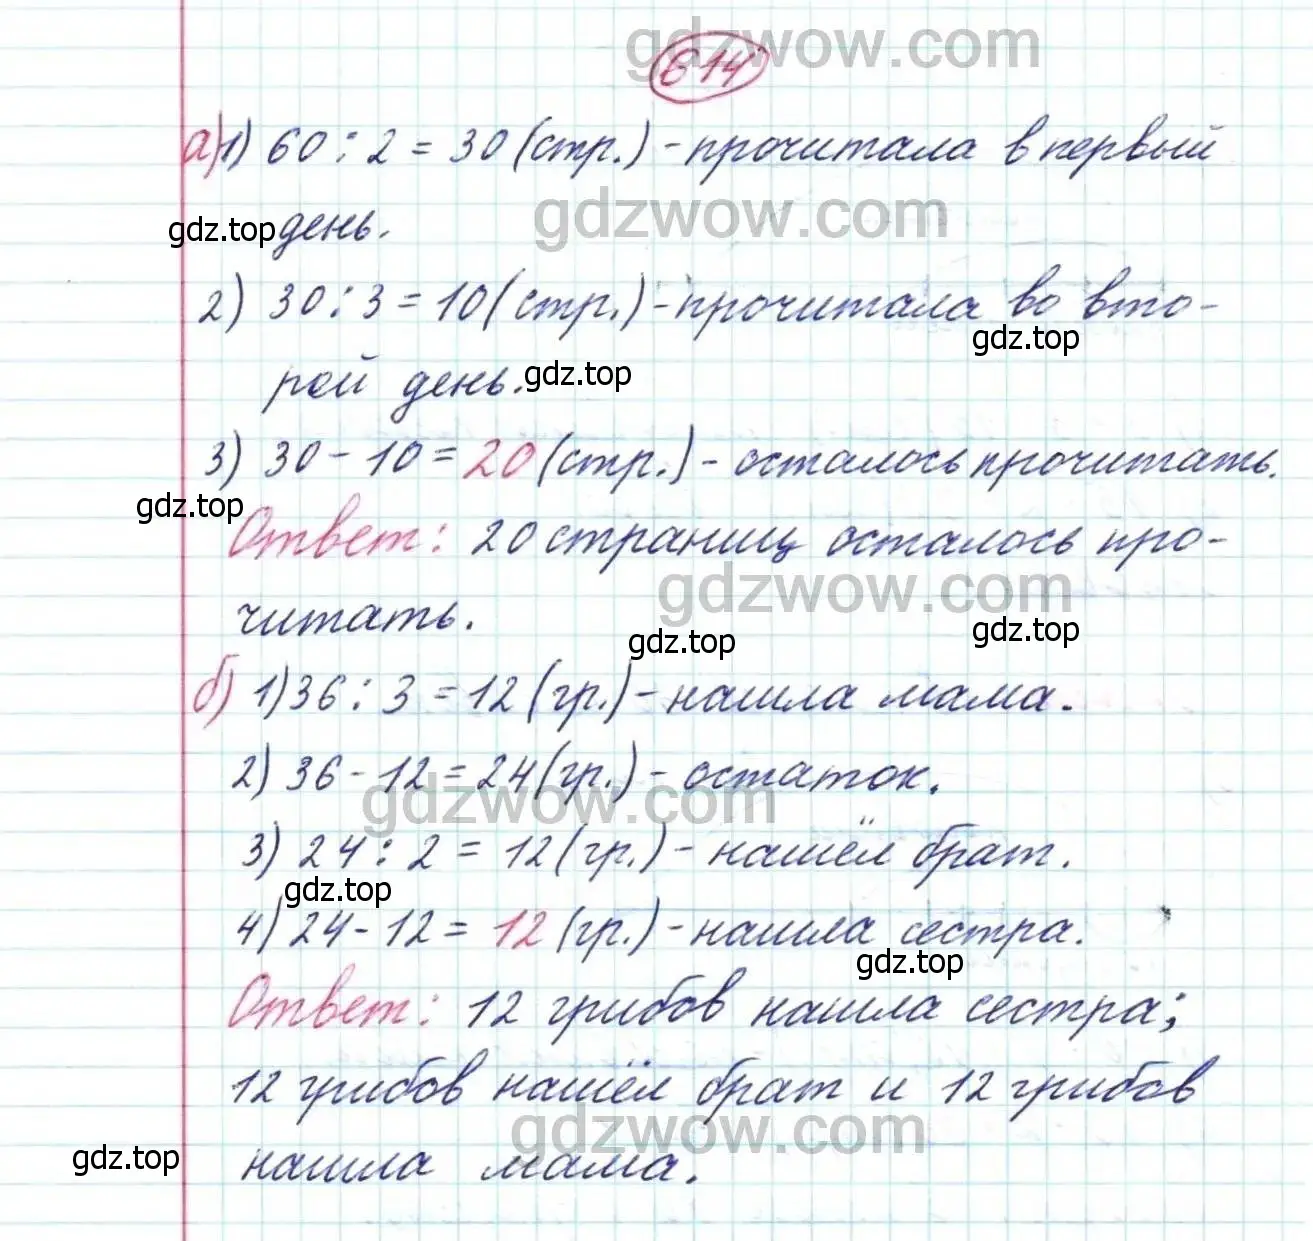 gdzwow.com
614
а) 1) 60 : 2 = 30 (стр.) - прочитала в первый
gdzwow.com
gdz.top день.
2) 30 : 3 = 10 (стр.) - прочитала во вто-
gdz.top
рой день. gdz.top
3) 30 - 10 = 20 (стр.) - осталось прочитать.
gdz.top
Ответ: 20 страниц осталось про-
gdzwow.com
читать.
gdz.top gdz.top
б) 1) 36 : 3 = 12 (гр.) - нашла мама.
2) 36 - 12 = 24 (гр.) - остаток.
gdzwow.com
3) 24 : 2 = 12 (гр.) - нашёл брат.
gdz.top
4) 24 - 12 = 12 (гр.) - нашла сестра.
gdz.top
Ответ: 12 грибов нашла сестра;
12 грибов нашёл брат и 12 грибов
gdzwow.com
gdz.top нашла мама.